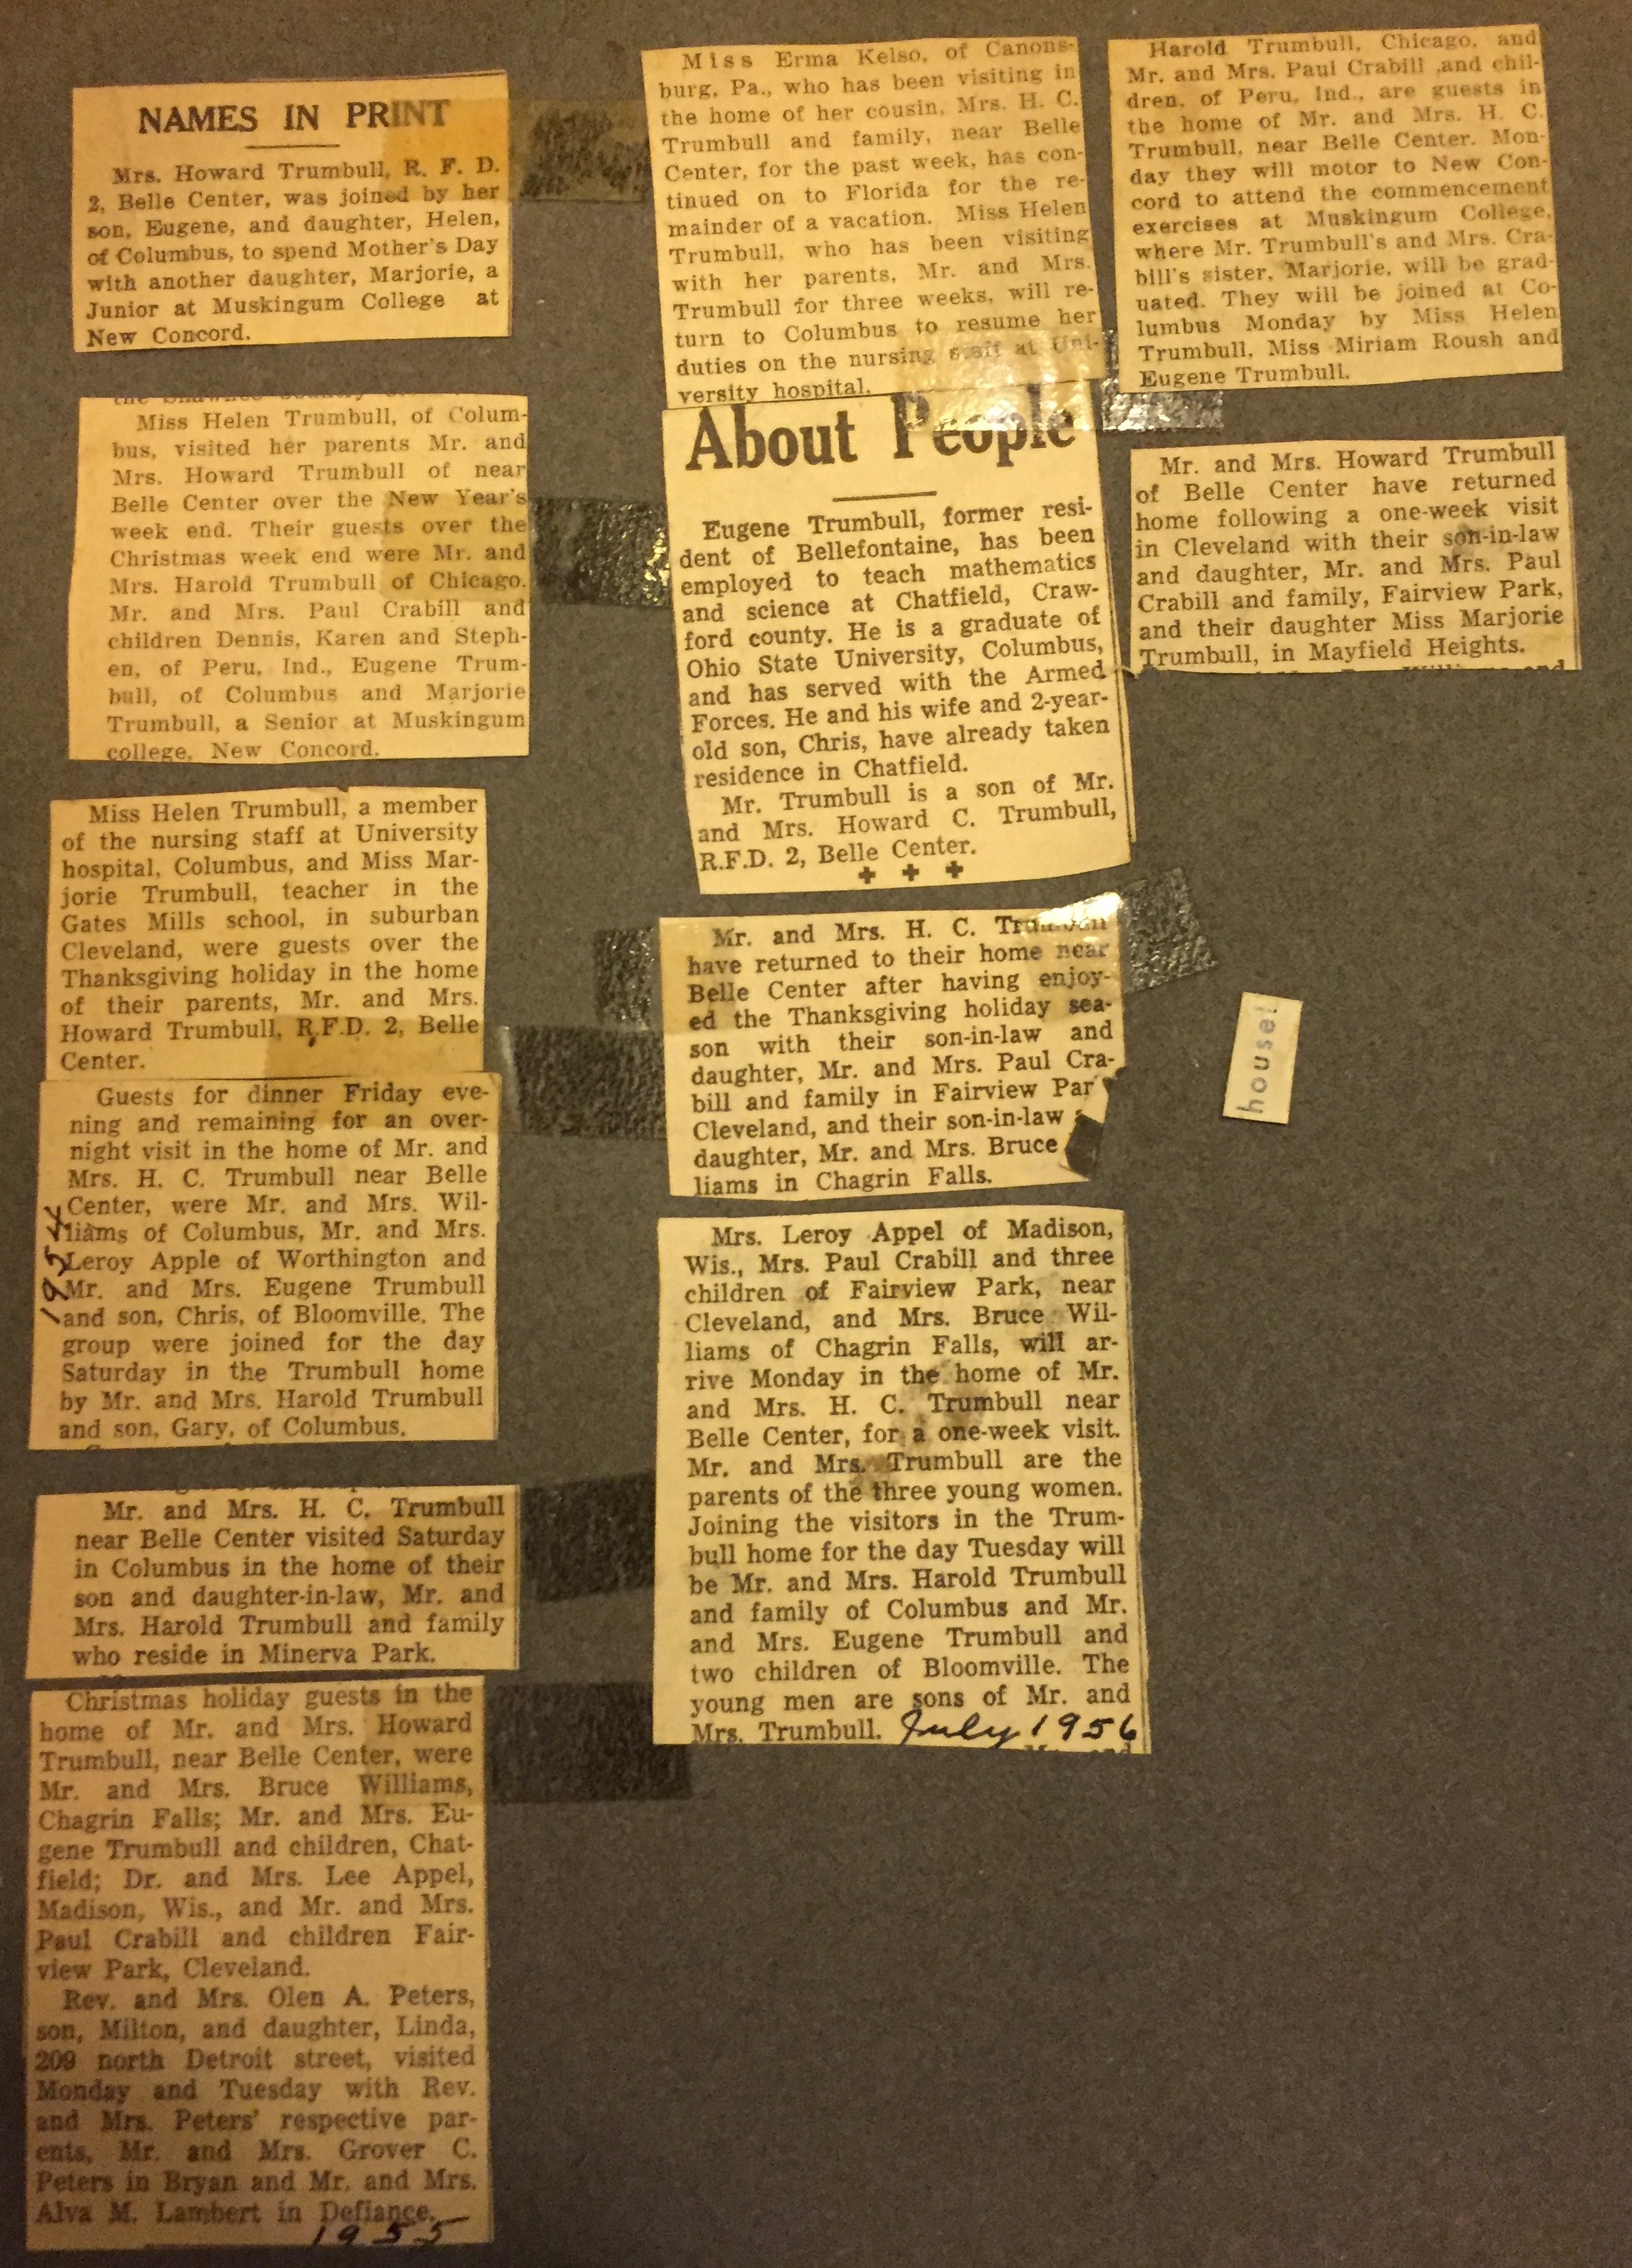 NAMES IN PRINT
Mrs. Howard Trumbull, R. F. D.
2, Belle Center, was joined by her
son, Eugene, and daughter, Helen,
of Columbus, to spend Mother's Day
with another daughter, Marjorie, a
Junior at Muskingum College at
New Concord.
Miss Helen Trumbull, of Colum-
bus, visited her parents Mr. and
Mrs. Howard Trumbull of near
Belle Center over the New Year's
week end. Their guests over the
Christmas week end were Mr. and
Mrs. Harold Trumbull of Chicago.
Mr. and Mrs. Paul Crabill and
children Dennis, Karen and Steph-
en, of Peru, Ind., Eugene Trum-
bull, of Columbus and Marjorie
Trumbull, a Senior at Muskingum
college, New Concord.
Miss Helen Trumbull, a member
of the nursing staff at University
hospital, Columbus, and Miss Mar-
jorie Trumbull, teacher in the
Gates Mills school, in suburban
Cleveland, were guests over the
Thanksgiving holiday in the home
of their parents, Mr. and Mrs.
Howard Trumbull, R.F.D. 2, Belle
Center.
Guests for dinner Friday eve-
ning and remaining for an over-
night visit in the home of Mr. and
Mrs. H. C. Trumbull near Belle
Center, were Mr. and Mrs. Wil-
liams of Columbus, Mr. and Mrs.
Leroy Apple of Worthington and
Mr. and Mrs. Eugene Trumbull
and son, Chris, of Bloomville. The
group were joined for the day
Saturday in the Trumbull home
by Mr. and Mrs. Harold Trumbull
and son, Gary, of Columbus.
1954
Mr. and Mrs. H. C. Trumbull
near Belle Center visited Saturday
in Columbus in the home of their
son and daughter-in-law, Mr. and
Mrs. Harold Trumbull and family
who reside in Minerva Park.
Christmas holiday guests in the
home of Mr. and Mrs. Howard
Trumbull, near Belle Center, were
Mr. and Mrs. Bruce Williams,
Chagrin Falls; Mr. and Mrs. Eu-
gene Trumbull and children, Chat-
field; Dr. and Mrs. Lee Appel,
Madison, Wis., and Mr. and Mrs.
Paul Crabill and children Fair-
view Park, Cleveland.
Rev. and Mrs. Olen A. Peters,
son, Milton, and daughter, Linda,
209 north Detroit street, visited
Monday and Tuesday with Rev.
and Mrs. Peters' respective par-
ents, Mr. and Mrs. Grover C.
Peters in Bryan and Mr. and Mrs.
Alva M. Lambert in Defiance.
1955
Miss Erma Kelso, of Canons-
burg, Pa., who has been visiting in
the home of her cousin, Mrs. H. C.
Trumbull and family, near Belle
Center, for the past week, has con-
tinued on to Florida for the re-
mainder of a vacation. Miss Helen
Trumbull, who has been visiting
with her parents, Mr. and Mrs.
Trumbull for three weeks, will re-
turn to Columbus to resume her
duties on the nursing staff at Uni-
versity hospital.
About People
Eugene Trumbull, former resi-
dent of Bellefontaine, has been
employed to teach mathematics
and science at Chatfield, Craw-
ford county. He is a graduate of
Ohio State University, Columbus,
and has served with the Armed
Forces. He and his wife and 2-year-
old son, Chris, have already taken
residence in Chatfield.
Mr. Trumbull is a son of Mr.
and Mrs. Howard C. Trumbull,
R.F.D. 2, Belle Center.
Mr. and Mrs. H. C. Trumbull
have returned to their home near
Belle Center after having enjoy-
ed the Thanksgiving holiday sea-
son with their son-in-law and
daughter, Mr. and Mrs. Paul Cra-
bill and family in Fairview Par
Cleveland, and their son-in-law
daughter, Mr. and Mrs. Bruce
liams in Chagrin Falls.
Mrs. Leroy Appel of Madison,
Wis., Mrs. Paul Crabill and three
children of Fairview Park, near
Cleveland, and Mrs. Bruce Wil-
liams of Chagrin Falls, will ar-
rive Monday in the home of Mr.
and Mrs. H. C. Trumbull near
Belle Center, for a one-week visit.
Mr. and Mrs. Trumbull are the
parents of the three young women.
Joining the visitors in the Trum-
bull home for the day Tuesday will
be Mr. and Mrs. Harold Trumbull
and family of Columbus and Mr.
and Mrs. Eugene Trumbull and
two children of Bloomville. The
young men are sons of Mr. and
Mrs. Trumbull. July 1956
Harold Trumbull, Chicago, and
Mr. and Mrs. Paul Crabill ,and chil-
dren, of Peru, Ind., are guests in
the home of Mr. and Mrs. H. C.
Trumbull, near Belle Center. Mon-
day they will motor to New Con-
cord to attend the commencement
exercises at Muskingum College,
where Mr. Trumbull's and Mrs. Cra-
bill's sister, Marjorie, will be grad-
uated. They will be joined at Co-
lumbus Monday by Miss Helen
Trumbull, Miss Miriam Roush and
Eugene Trumbull.
Mr. and Mrs. Howard Trumbull
of Belle Center have returned
home following a one-week visit
in Cleveland with their son-in-law
and daughter, Mr. and Mrs. Paul
Crabill and family, Fairview Park,
and their daughter Miss Marjorie
Trumbull, in Mayfield Heights.
house!